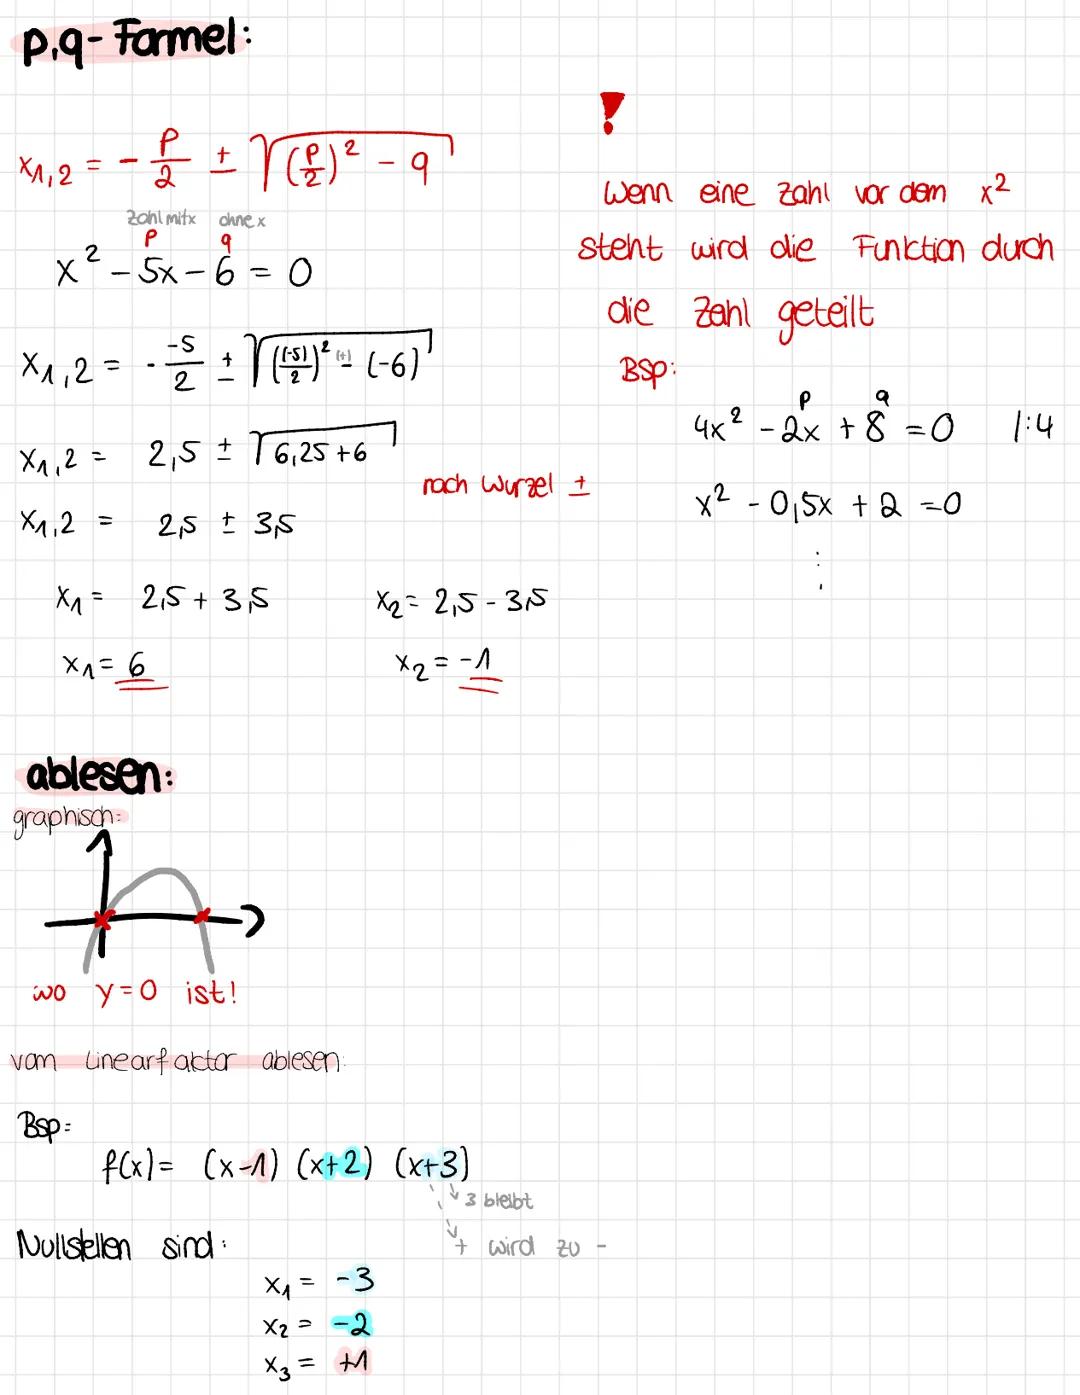 p,q-Formel:
x₁,₂ = - p/2 ± √((p/2)² - q)
Zahl mit x ohne x
p q
x² - 5x - 6 = 0
x₁,₂ = - -5/2 ± √(((-5)/2)² (+) - (-6))
x₁,₂ = 2,5 ± √(6,25 + 6)
nach Wurzel ±
x₁,₂ = 2,5 ± 3,5
x₁ = 2,5 + 3,5 x₂ = 2,5 - 3,5
x₁ = 6 x₂ = -1
!
Wenn eine Zahl vor dem x²
steht wird die Funktion durch
die Zahl geteilt
Bsp:
p q
4x² - 2x + 8 = 0 |:4
x² - 0,5x + 2 = 0
⋮
ablesen:
graphisch:
wo y = 0 ist!
vom Linearfaktor ablesen:
Bsp:
f(x) = (x-1) (x+2) (x+3)
3 bleibt
+ wird zu -
Nullstellen sind:
x₁ = -3
x₂ = -2
x₃ = +1